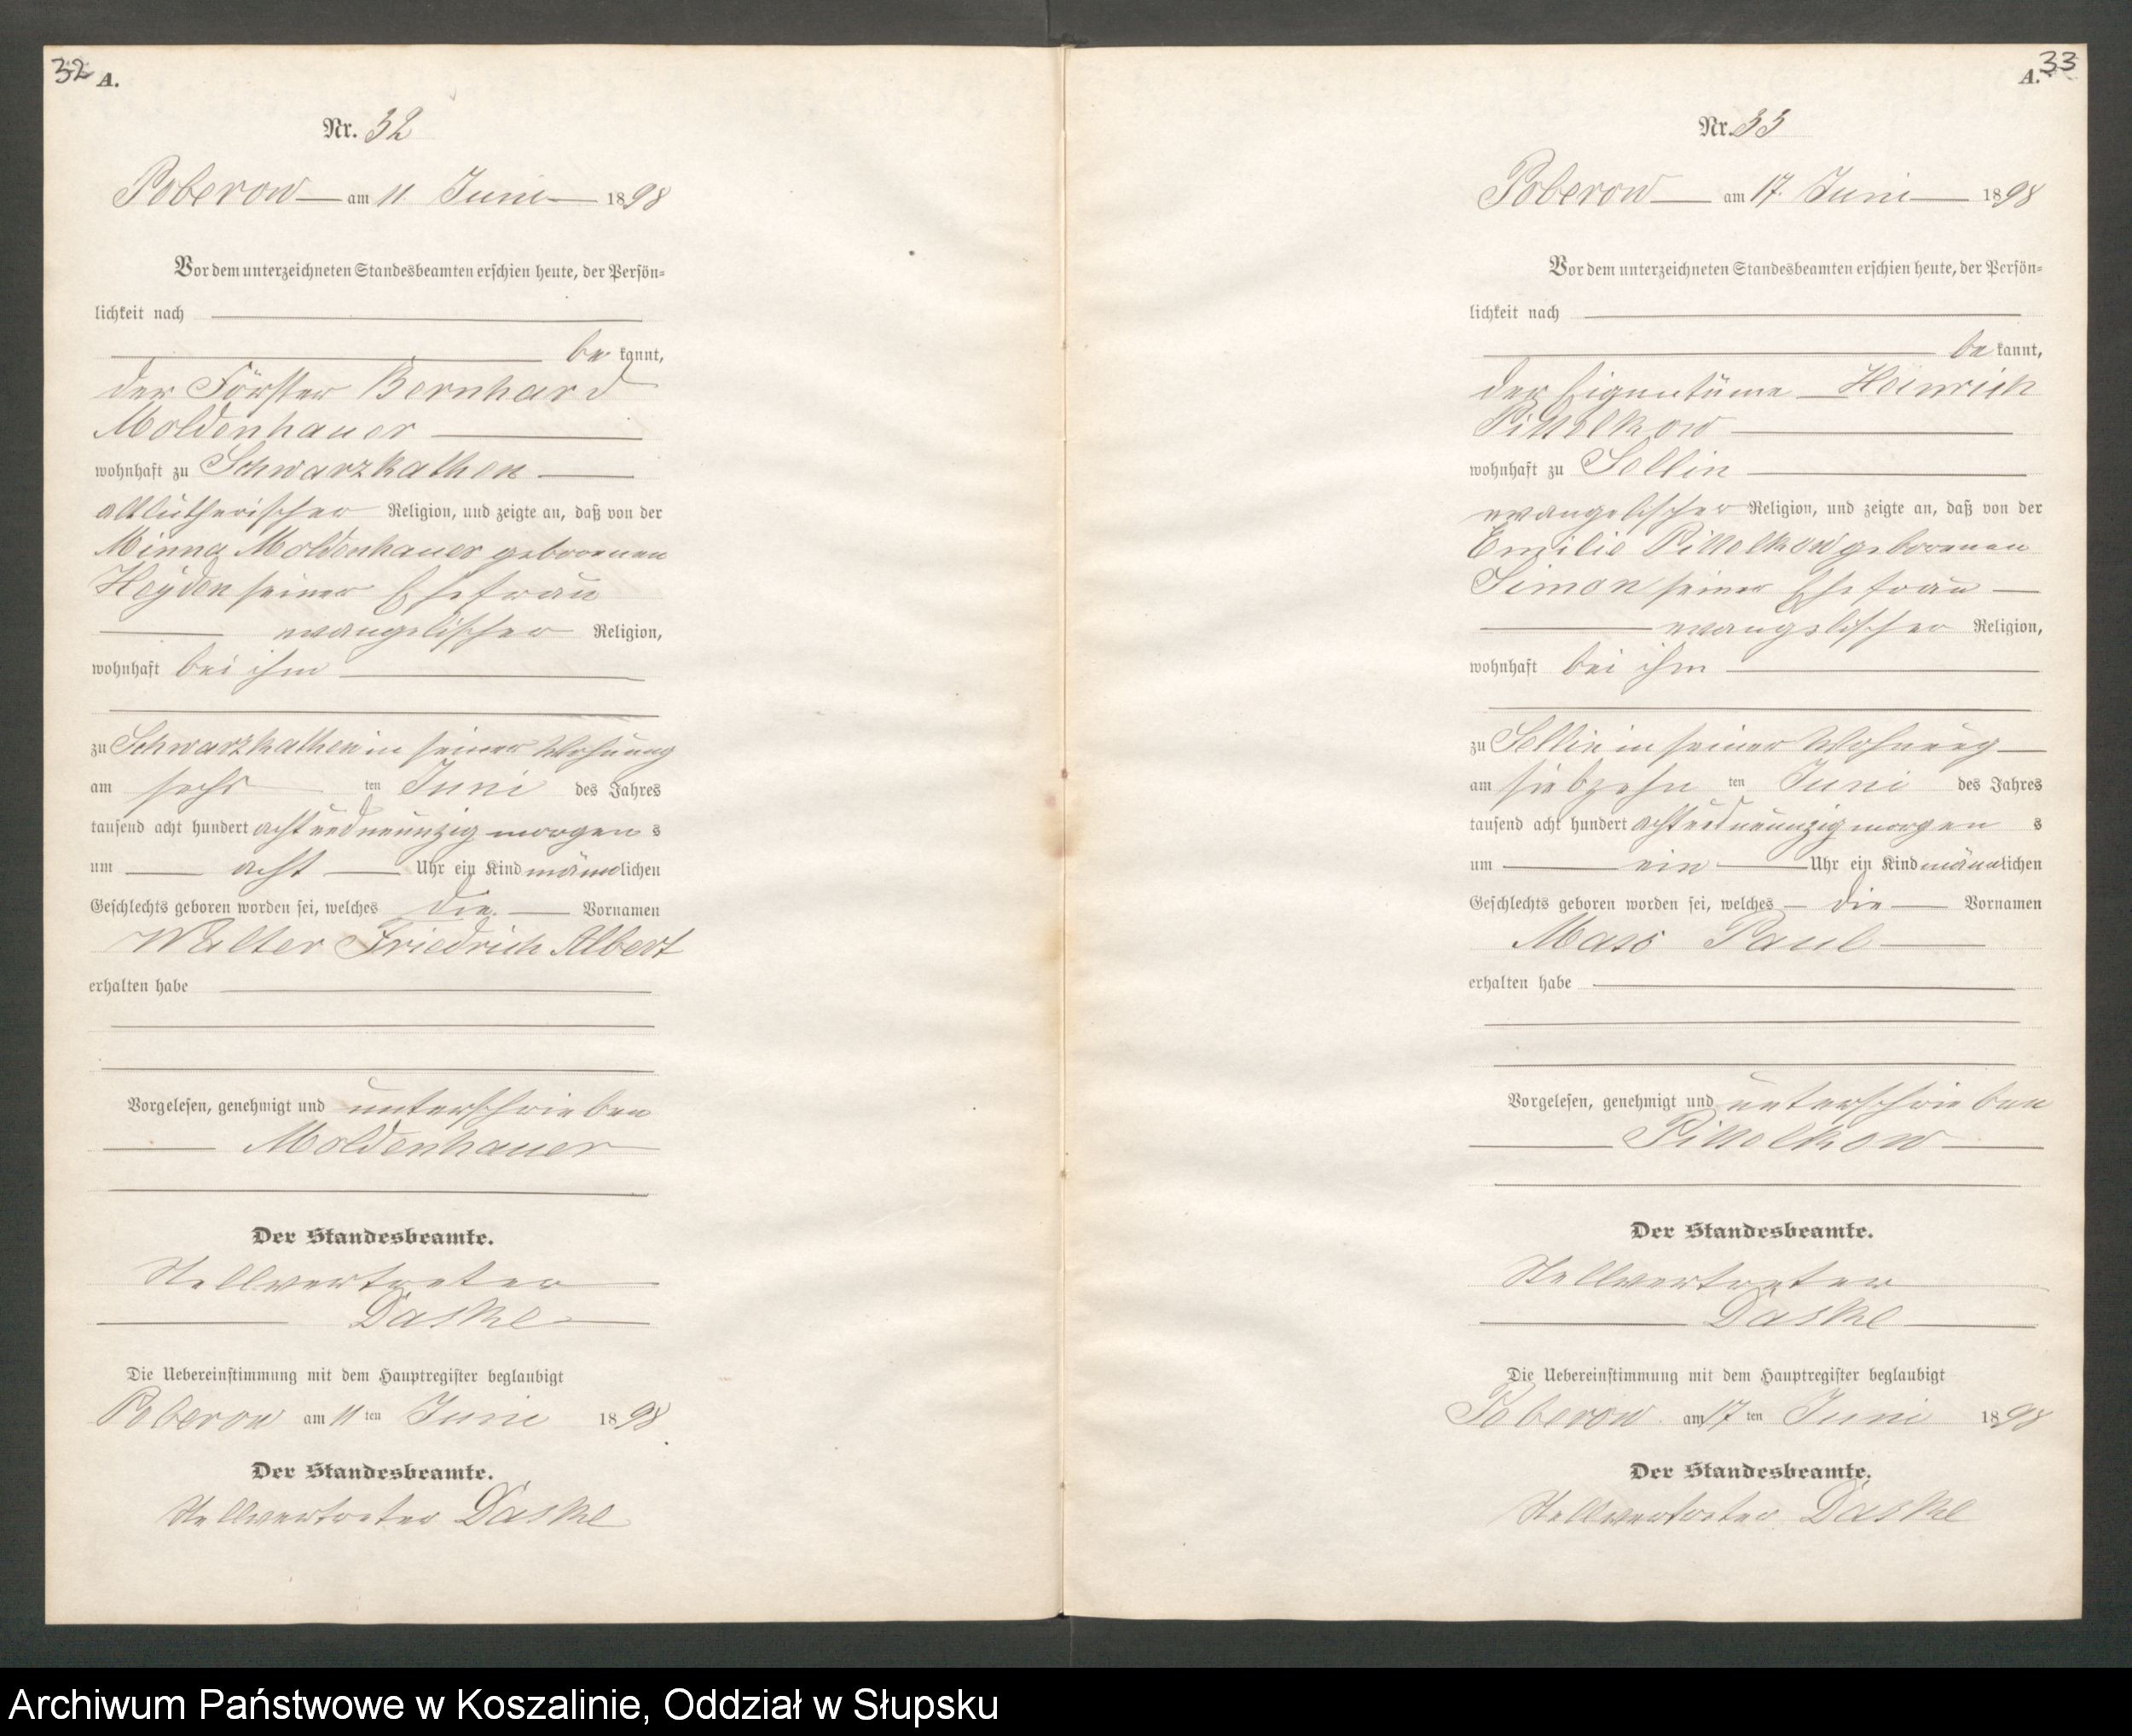 32 A.
Nr. 32
Poberow am 11 Juni 1898
Vor dem unterzeichneten Standesbeamten erschien heute, der Persön-
lichkeit nach
be kannt,
der Förster Bernhard
Moldenhauer
wohnhaft zu Schwarzkathen
altlutherischer Religion, und zeigte an, daß von der
Minna Moldenhauer geborenen
Heyden seiner Ehefrau
evangelischer Religion,
wohnhaft bei ihm
zu Schwarzkathen in seiner Wohnung
am sechsten Juni des Jahres
tausend acht hundert acht und neunzig morgens
um acht Uhr ein Kind männlichen
Geschlechts geboren worden sei, welches die Vornamen
Walter Friedrich Albert
erhalten habe
Vorgelesen, genehmigt und unterschrieben
Moldenhauer
Der Standesbeamte.
Stellvertreter
Daske
Die Uebereinstimmung mit dem Hauptregister beglaubigt
Poberow am 11ten Juni 1898
Der Standesbeamte.
Stellvertreter Daske
A. 33
Nr. 33
Poberow am 17. Juni 1898
Vor dem unterzeichneten Standesbeamten erschien heute, der Persön-
lichkeit nach
be kannt,
der Eigentümer Heinrich
Pittelkow
wohnhaft zu Sellin
evangelischer Religion, und zeigte an, daß von der
Emilie Pittelkow geborenen
Simon seiner Ehefrau
evangelischer Religion,
wohnhaft bei ihm
zu Sellin in seiner Wohnung
am siebzehnten Juni des Jahres
tausend acht hundert acht und neunzig morgens
um ein Uhr ein Kind männlichen
Geschlechts geboren worden sei, welches die Vornamen
Max Paul
erhalten habe
Vorgelesen, genehmigt und unterschrieben
Pittelkow
Der Standesbeamte.
Stellvertreter
Daske
Die Uebereinstimmung mit dem Hauptregister beglaubigt
Poberow am 17ten Juni 1898
Der Standesbeamte.
Stellvertreter Daske
Archiwum Państwowe w Koszalinie, Oddział w Słupsku